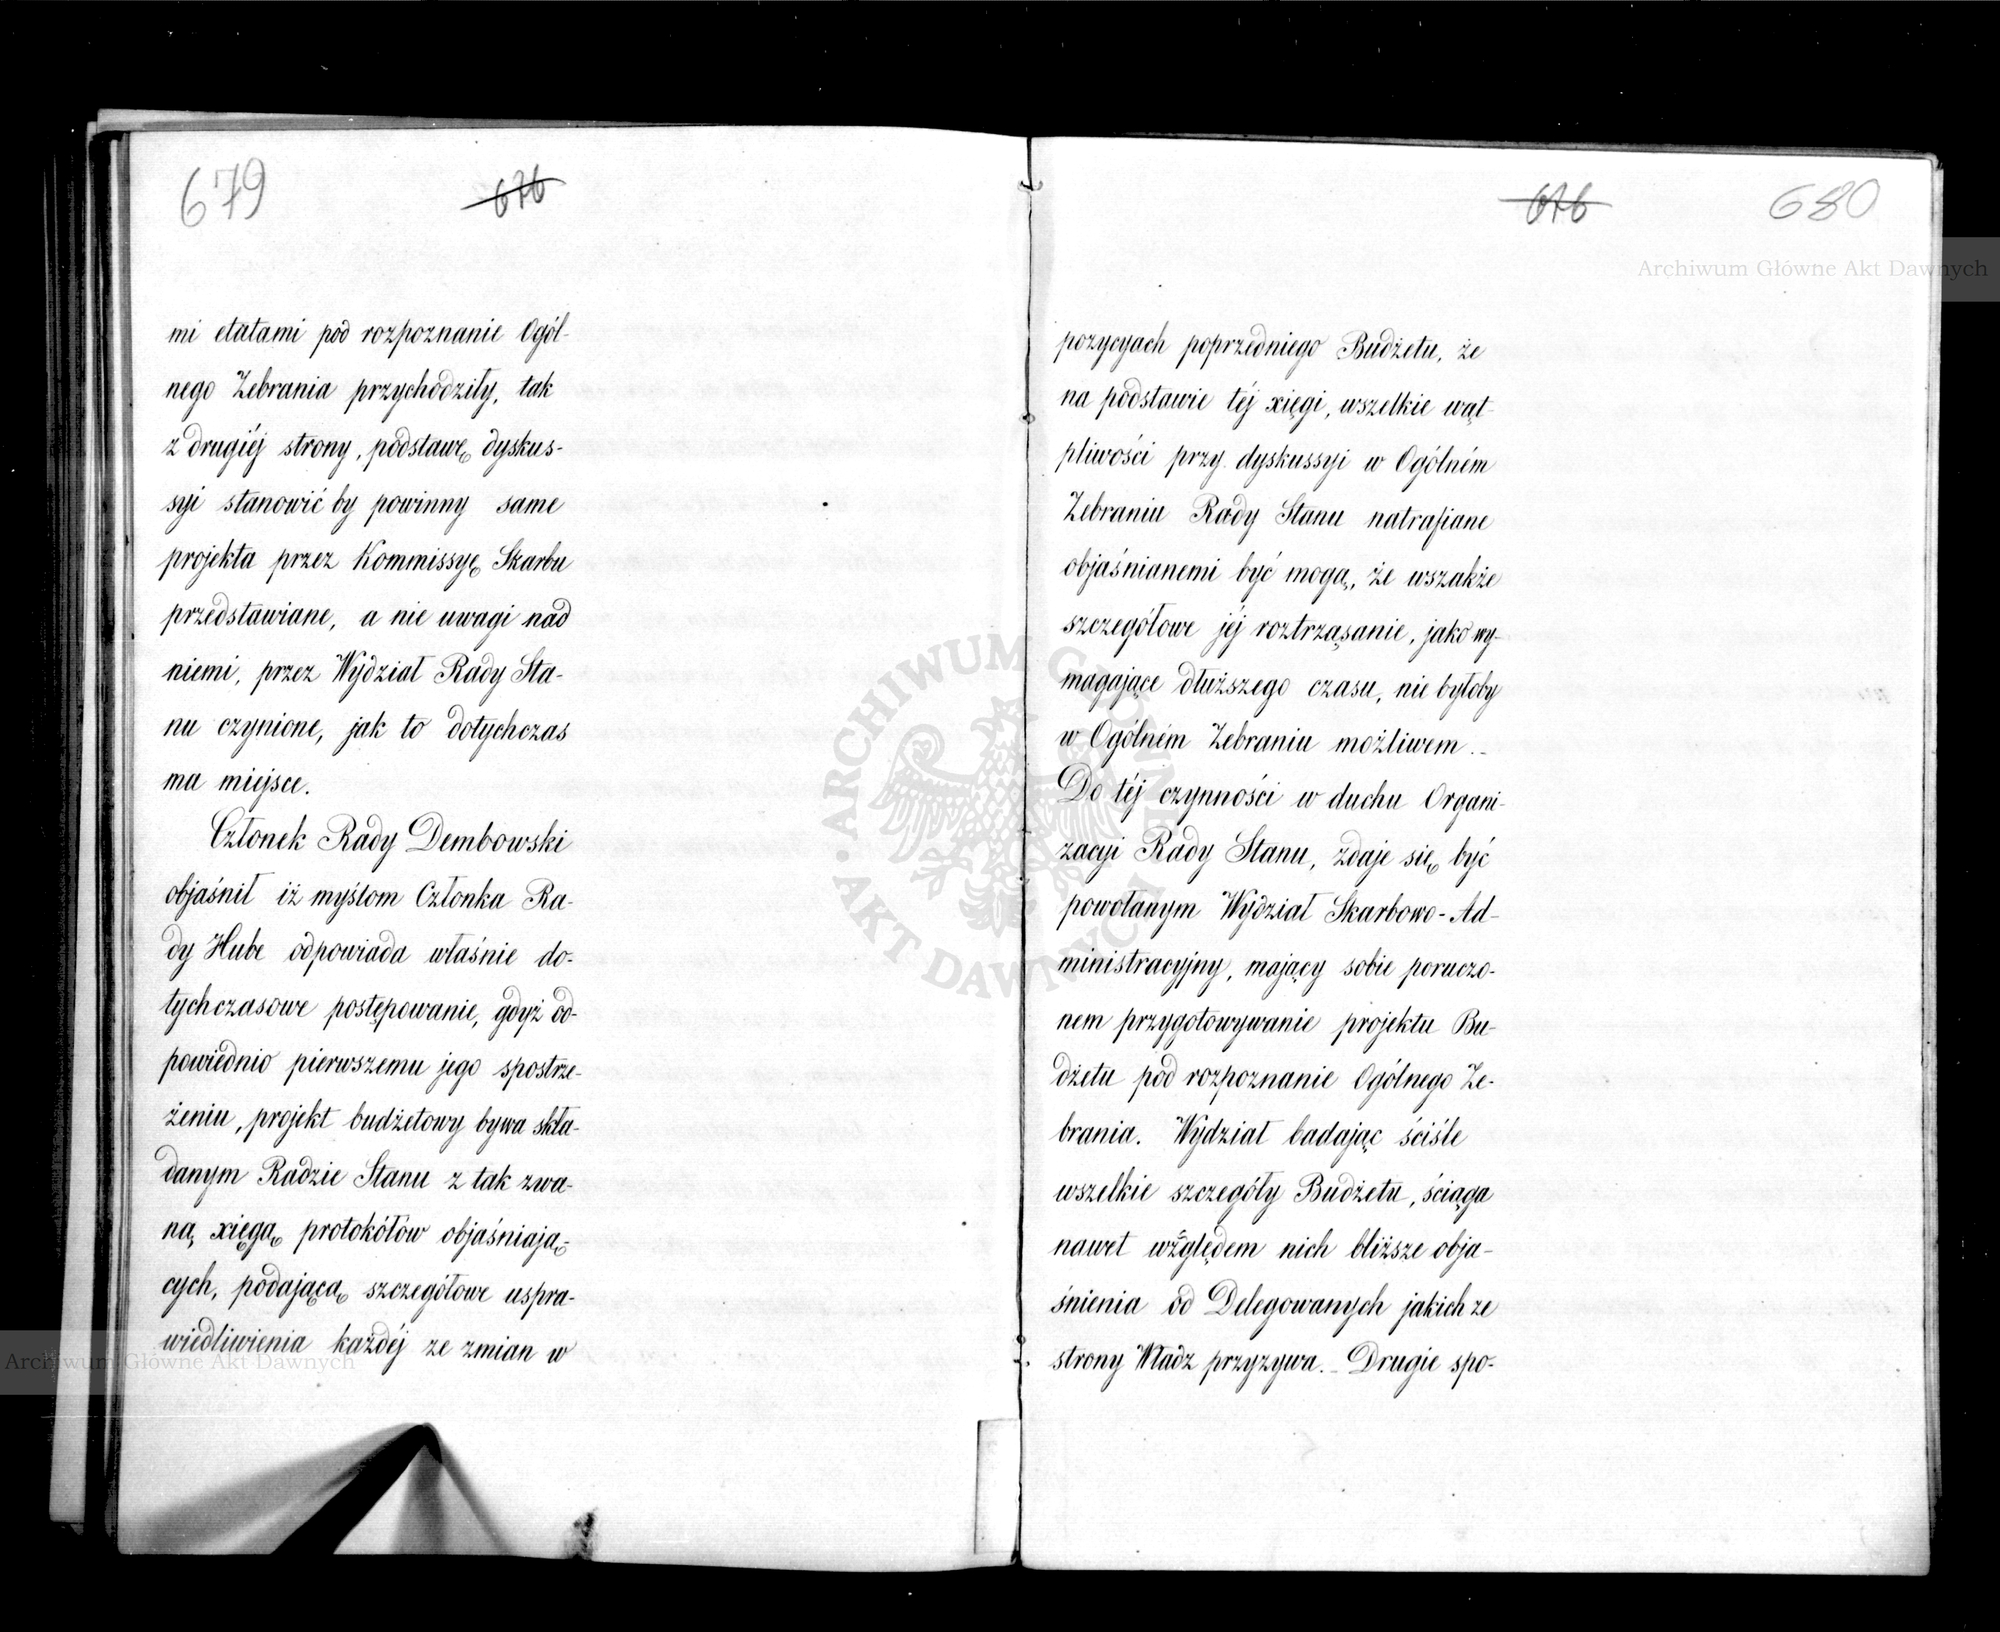 679
676
mi etatami pod rozpoznanie Ogól-
nego Zebrania przychodziły, tak
z drugiéj strony, podstawę dyskus-
syi stanowić by powinny same
projekta przez Kommissyę Skarbu
przedstawiane, a nie uwagi nad
niemi, przez Wydział Rady Sta-
nu czynione, jak to dotychczas
ma miejsce.
Członek Rady Dembowski
objaśnił iż myślom Członka Ra-
dy Hube odpowiada właśnie do-
tychczasowe postępowanie, gdyż od-
powiednio pierwszemu jego spostrze-
żeniu, projekt budżetowy bywa skła-
danym Radzie Stanu z tak zwa-
ną xięgą protokółów objaśniają-
cych, podającą szczegółowe uspra-
wiedliwienia każdéj ze zmian w
676
680
pozycyach poprzedniego Budżetu, że
na podstawie téj xięgi, wszelkie wąt-
pliwości przy dyskussyi w Ogólném
Zebraniu Rady Stanu natrafiane
objaśnianemi być mogą, że wszakże
szczegółowe jéj roztrząsanie, jako wy-
magające dłuższego czasu, nie byłoby
w Ogólném Zebraniu możliwem. –
Do téj czynności w duchu Organi-
zacyi Rady Stanu, zdaje się być
powołanym Wydział Skarbowo-Ad-
ministracyjny, mający sobie poruczo-
nem przygotowywanie projektu Bu-
dżetu pod rozpoznanie Ogólnego Ze-
brania. Wydział badając ściśle
wszelkie szczegóły Budżetu, ściąga
nawet względem nich bliższe obja-
śnienia od Delegowanych jakich ze
strony Władz przyzywa. – Drugie spo-
Archiwum Główne Akt Dawnych
ARCHIWUM GŁÓWNE
AKT DAWNYCH
Archiwum Główne Akt Dawnych